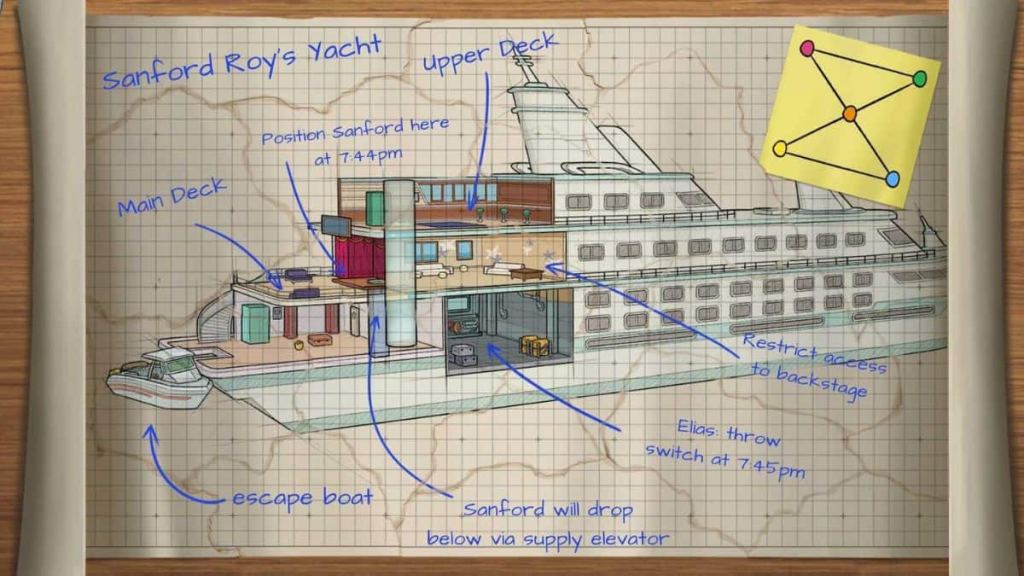 Sanford Roy's Yacht
Upper Deck
Position Sanford here
at 7:44pm
Main Deck
Restrict access
to backstage
Elias: throw
switch at 7:45pm
escape boat
Sanford will drop
below via supply elevator